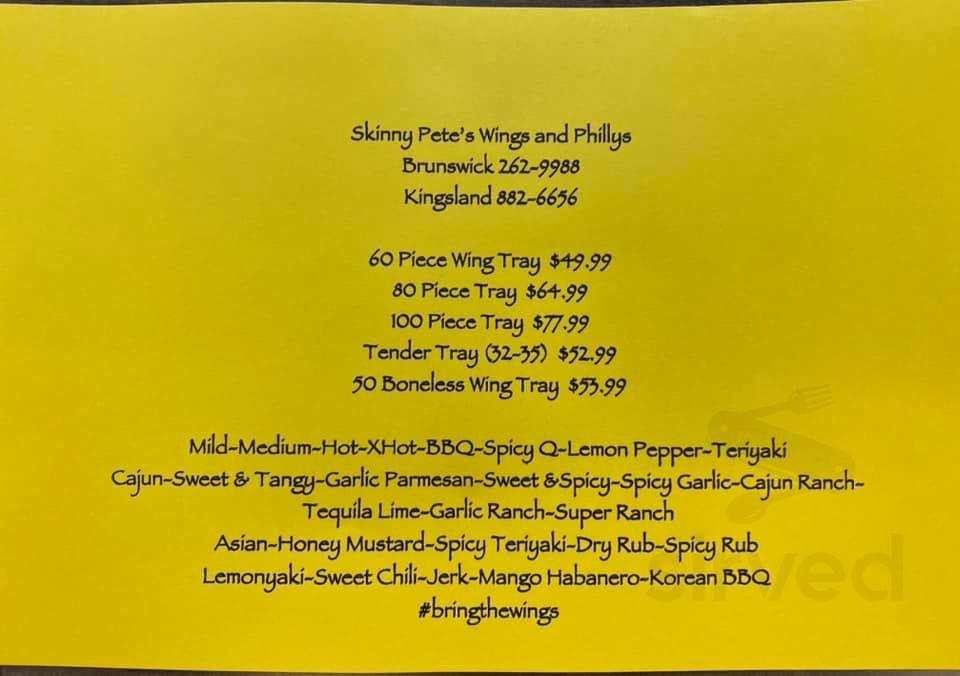 Skinny Pete's Wings and Phillys
Brunswick 262-9988
Kingsland 882-6656
60 Piece Wing Tray $49.99
80 Piece Tray $64.99
100 Piece Tray $77.99
Tender Tray (32-35) $52.99
50 Boneless Wing Tray $53.99
Mild-Medium-Hot-XHot-BBQ-Spicy Q-Lemon Pepper-Teriyaki
Cajun-Sweet & Tangy-Garlic Parmesan-Sweet &Spicy-Spicy Garlic-Cajun Ranch-
Tequila Lime-Garlic Ranch-Super Ranch
Asian-Honey Mustard-Spicy Teriyaki-Dry Rub-Spicy Rub
Lemonyaki-Sweet Chili-Jerk-Mango Habanero-Korean BBQ
#bringthewings
sirved